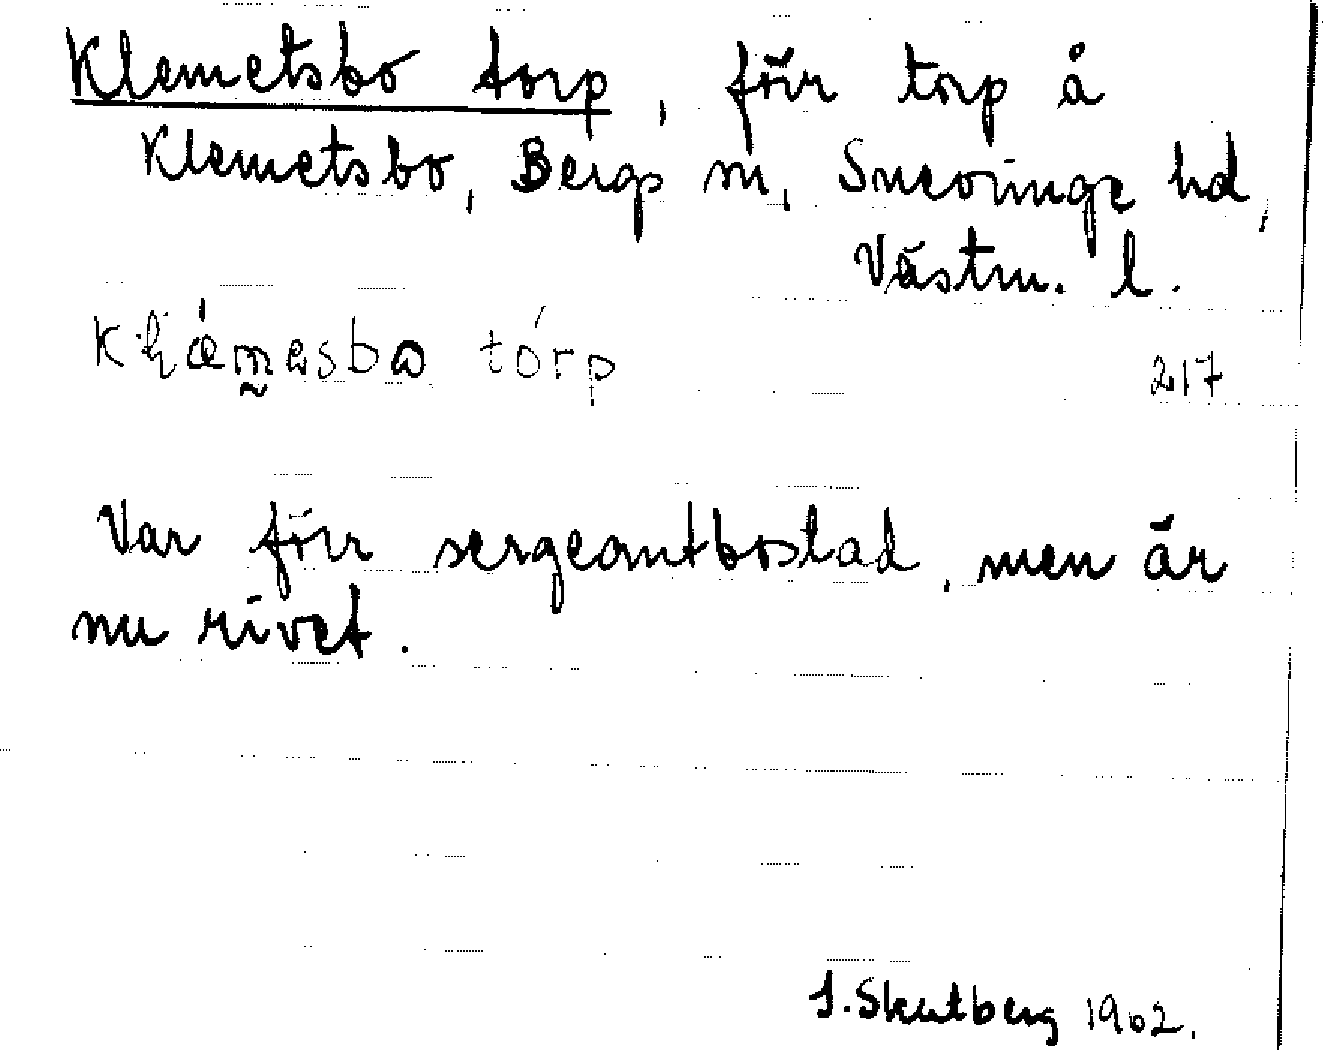 Klemetsbo torp, förr torp å
Klemetsbo, Bergs sn, Snevringe hd,
Västm. l.
tórp
217
Var förr sergeantbostad, men är
nu rivet.
S. Skutberg 1962.